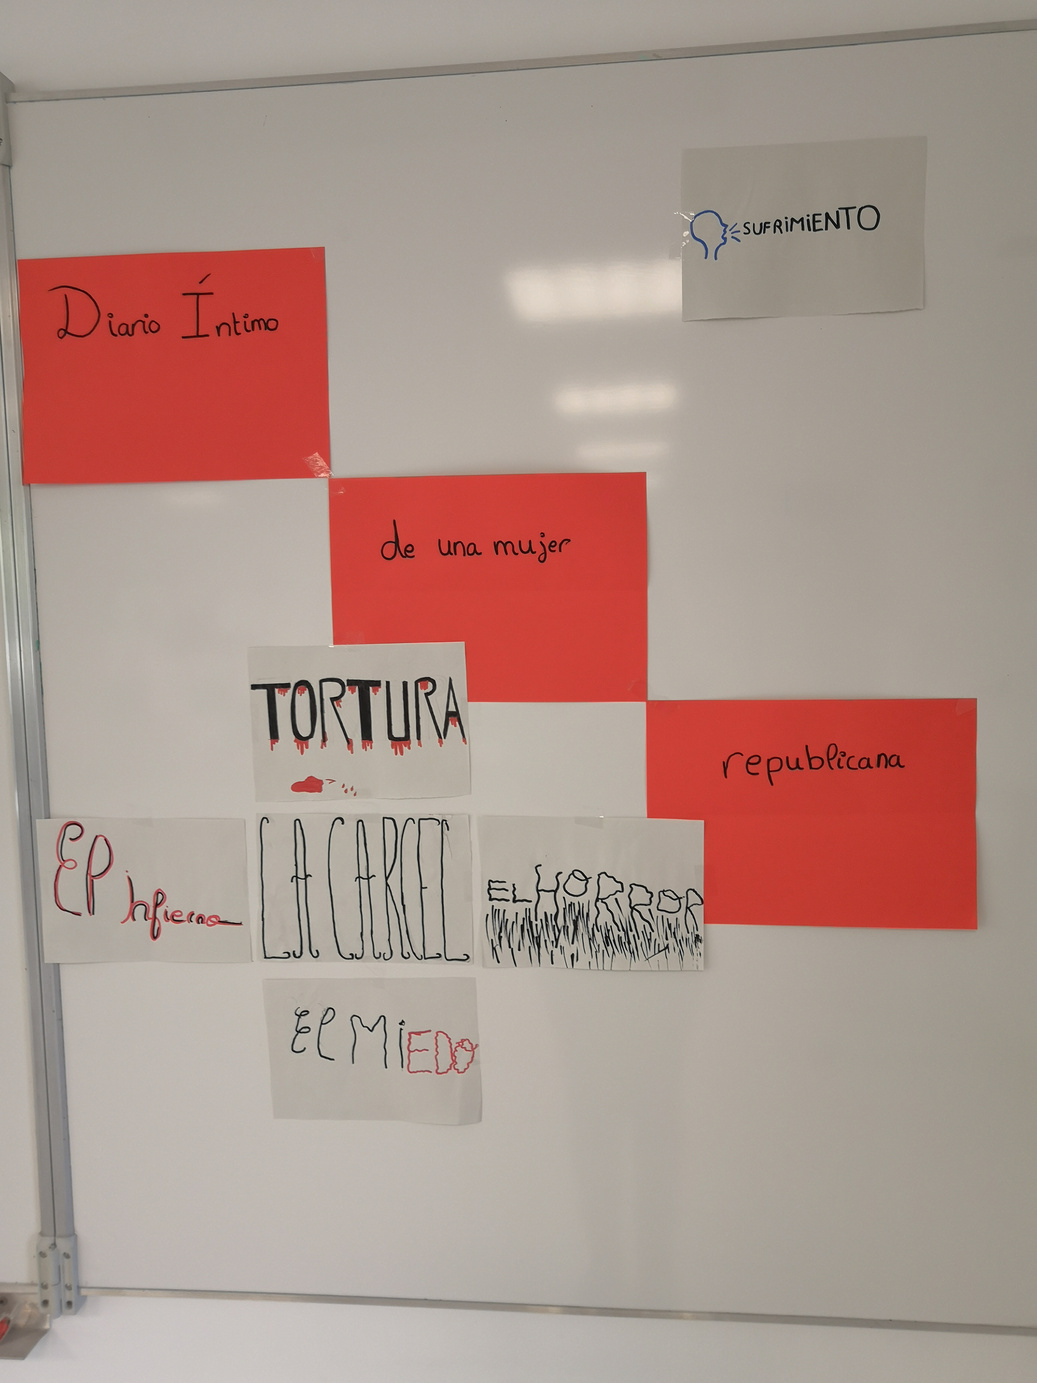 SUFRIMIENTO
Diario Íntimo
de una mujer
republicana
TORTURA
El infierno
LA CARCEL
EL HORROR
El MiEDO